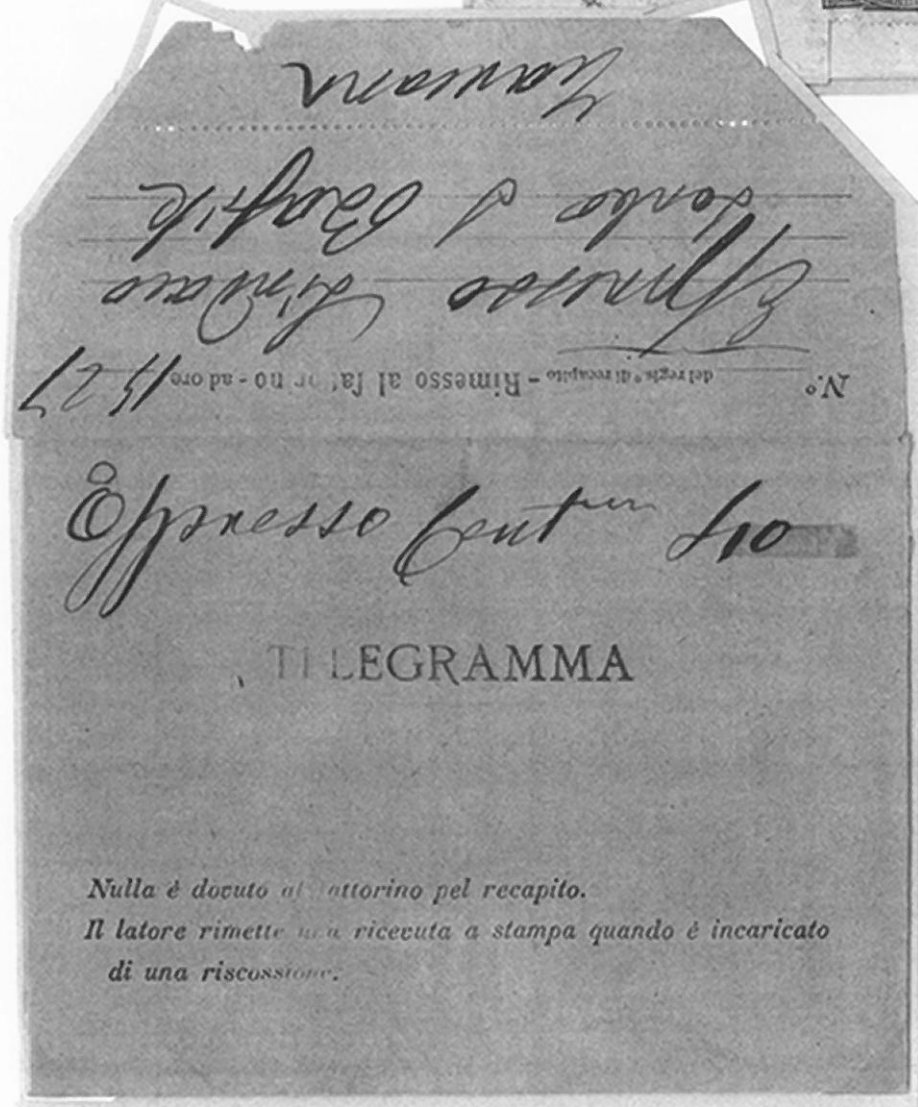 N.º del regis.º di recapito - Rimesso al fattorino - ad ore 15 27
Espresso Sindaco
Santo S Basile
Espresso
TELEGRAMMA
Nulla è dovuto al fattorino pel recapito.
Il latore rimette una ricevuta a stampa quando è incaricato
di una riscossione.